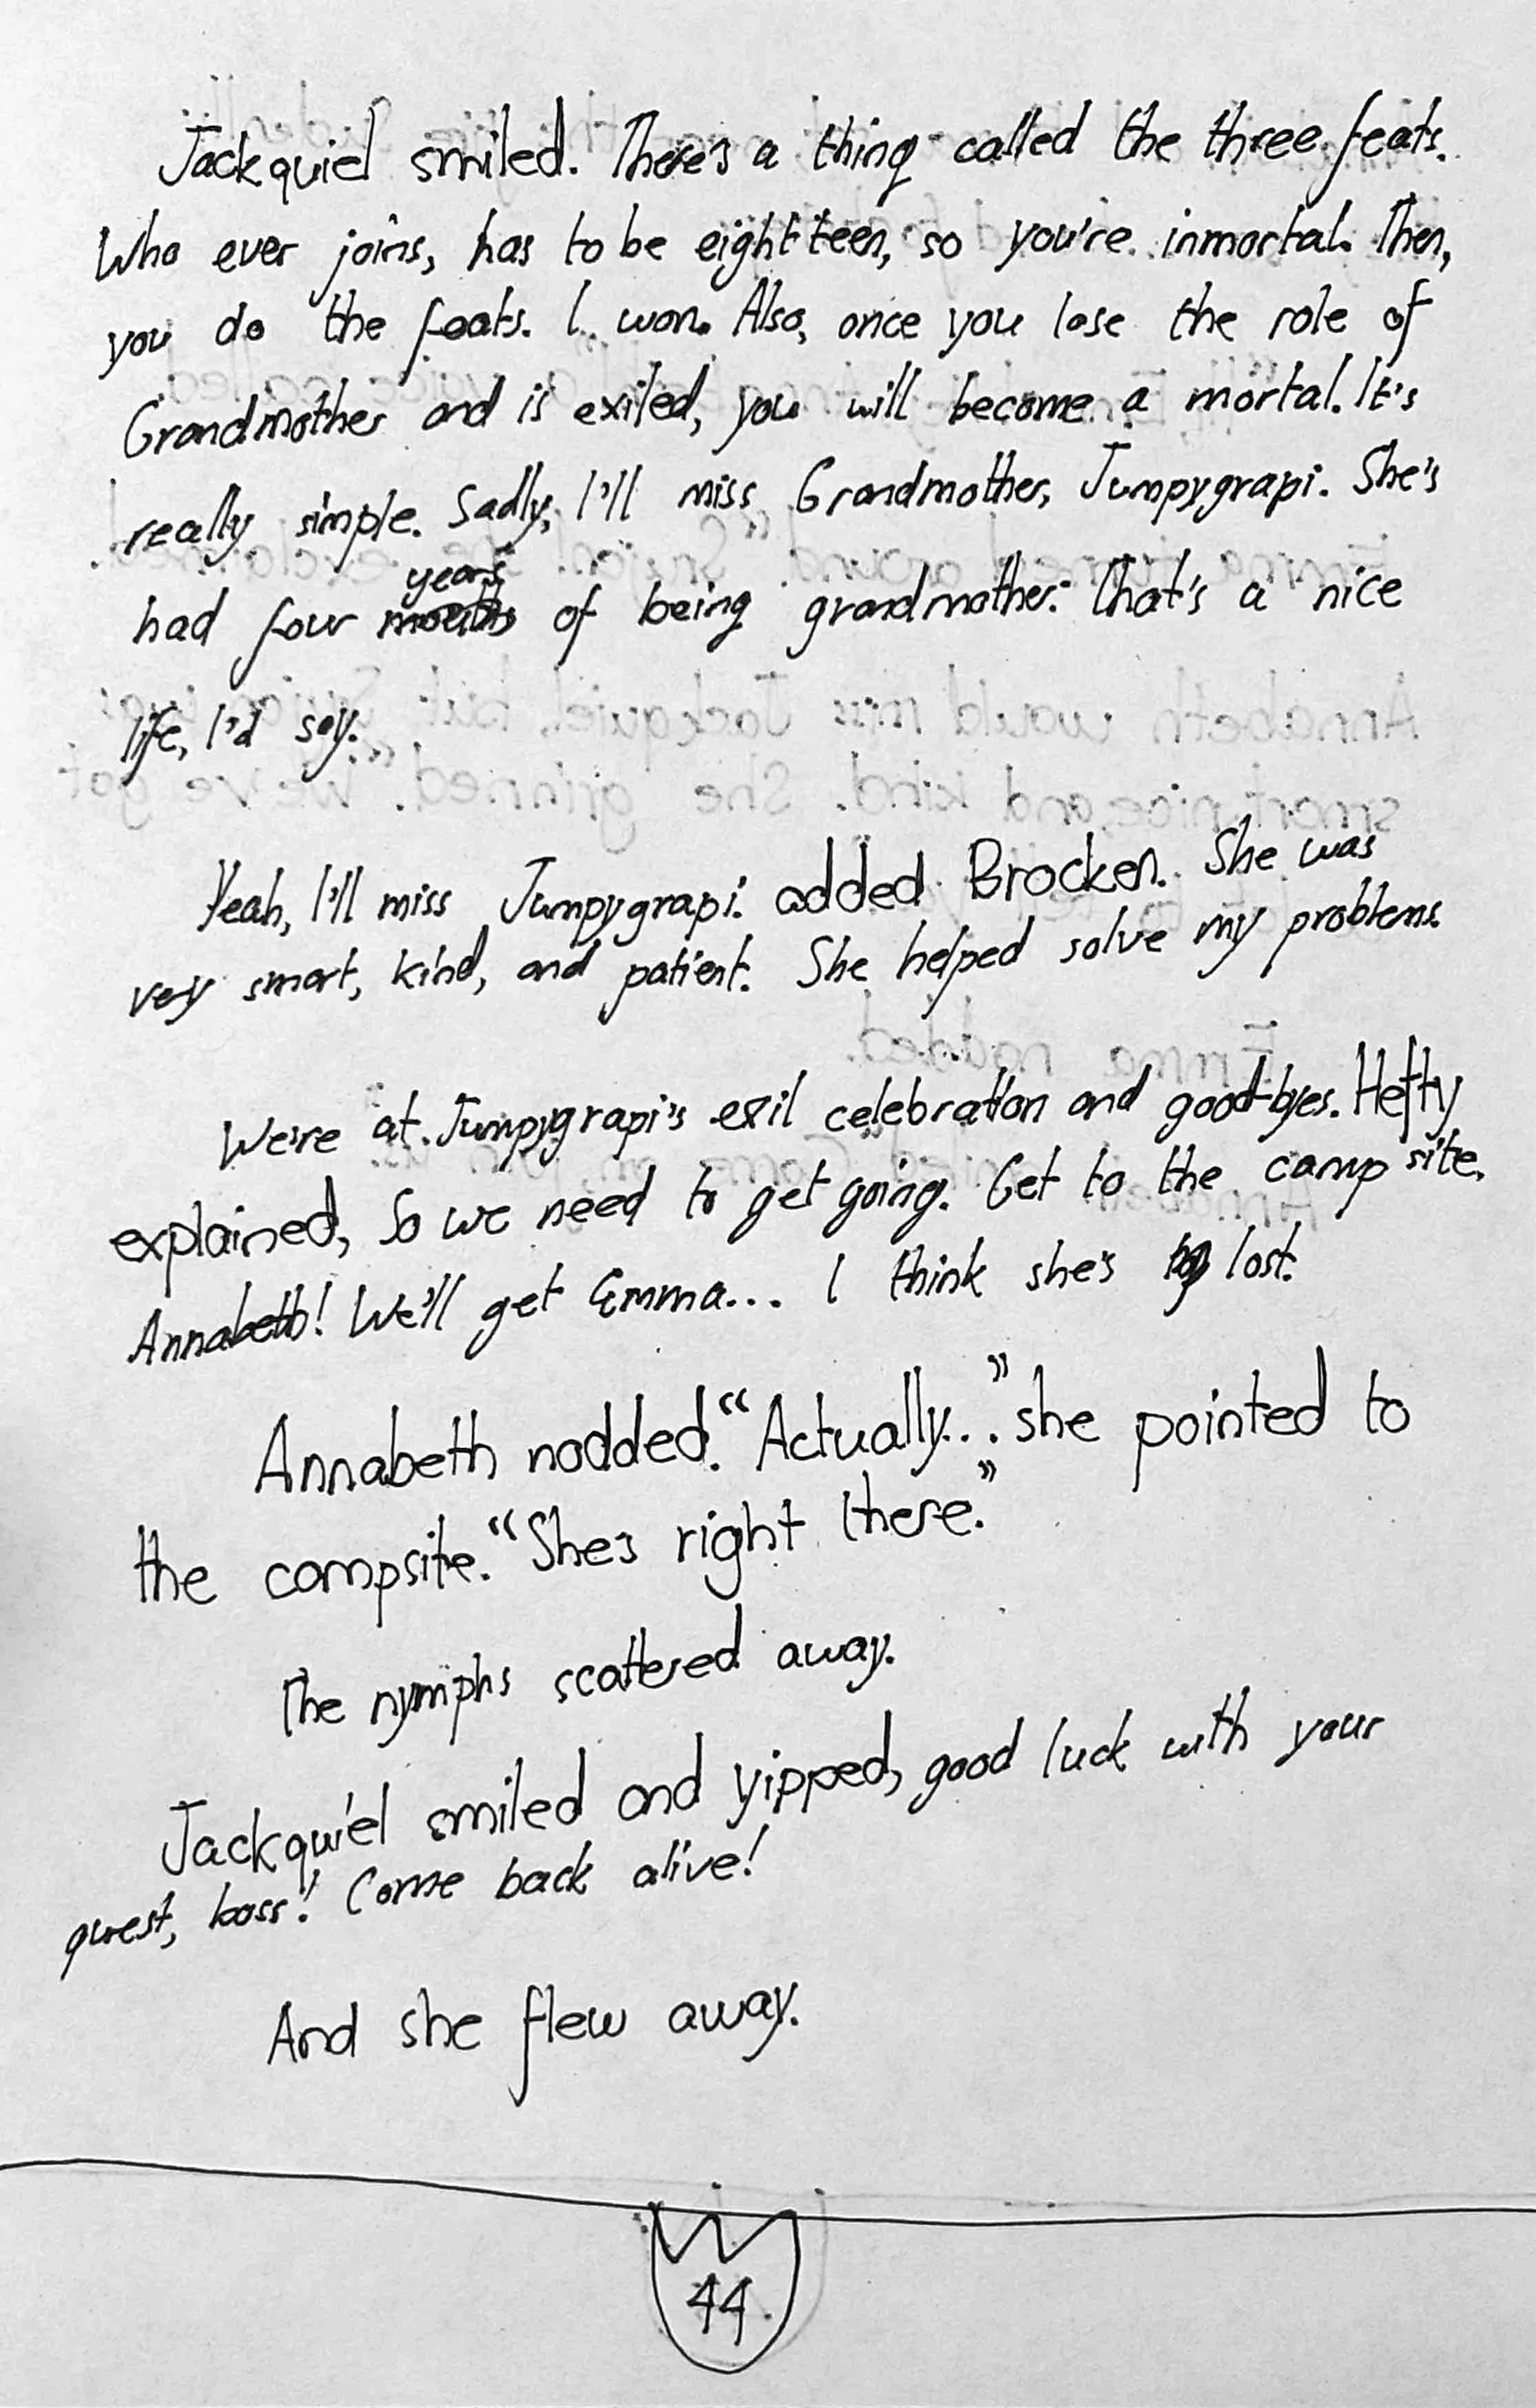 Jackquiel smiled. There's a thing called the three feats.
Who ever joins, has to be eightteen, so you're inmortal. Then,
you do the feats. I won. Also, once you lose the role of
Grandmother and is exiled, you will become a mortal. It's
really simple. Sadly, I'll miss Grandmother, Jumpygrapi. She's
years
had four months of being grandmother. That's a nice
life, I'd say.
Yeah, I'll miss Jumpygrapi. added Brocken. She was
very smart, kind, and patient. She helped solve my problems.
We're at Jumpygrapi's exil celebration and good-byes. Hefty
explained, So we need to get going. Get to the camp site,
Annabeth! We'll get Emma... I think she's lost.
Annabeth nodded. "Actually..." she pointed to
the campsite. "She's right there."
The nymphs scattered away.
Jackquiel smiled and yipped, good luck with your
quest, boss! Come back alive!
And she flew away.
44